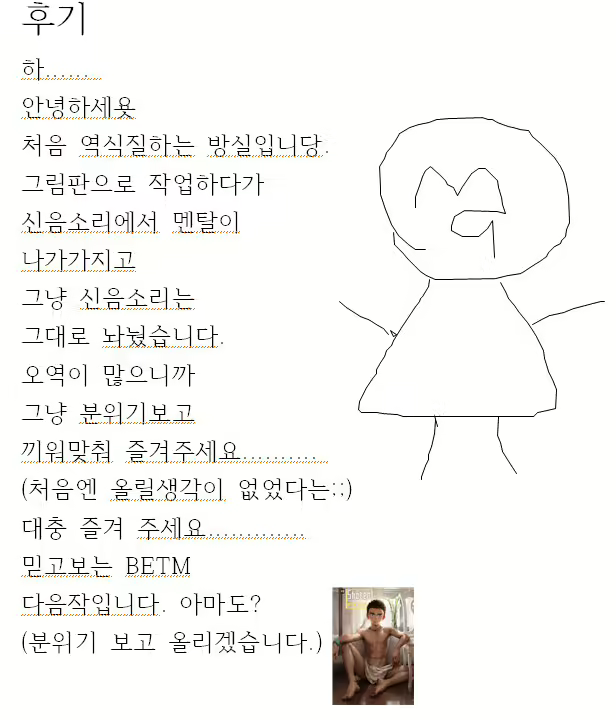 후기
하......
안녕하세욧
처음 역식질하는 방실입니당.
그림판으로 작업하다가
신음소리에서 멘탈이
나가가지고
그냥 신음소리는
그대로 놔뒀습니다.
오역이 많으니까
그냥 분위기보고
끼워맞춰 즐겨주세요..........
(처음엔 올릴생각이 없었다는;;)
대충 즐겨 주세요.............
믿고보는 BETM
다음작입니다. 아마도?
(분위기 보고 올리겠습니다.)